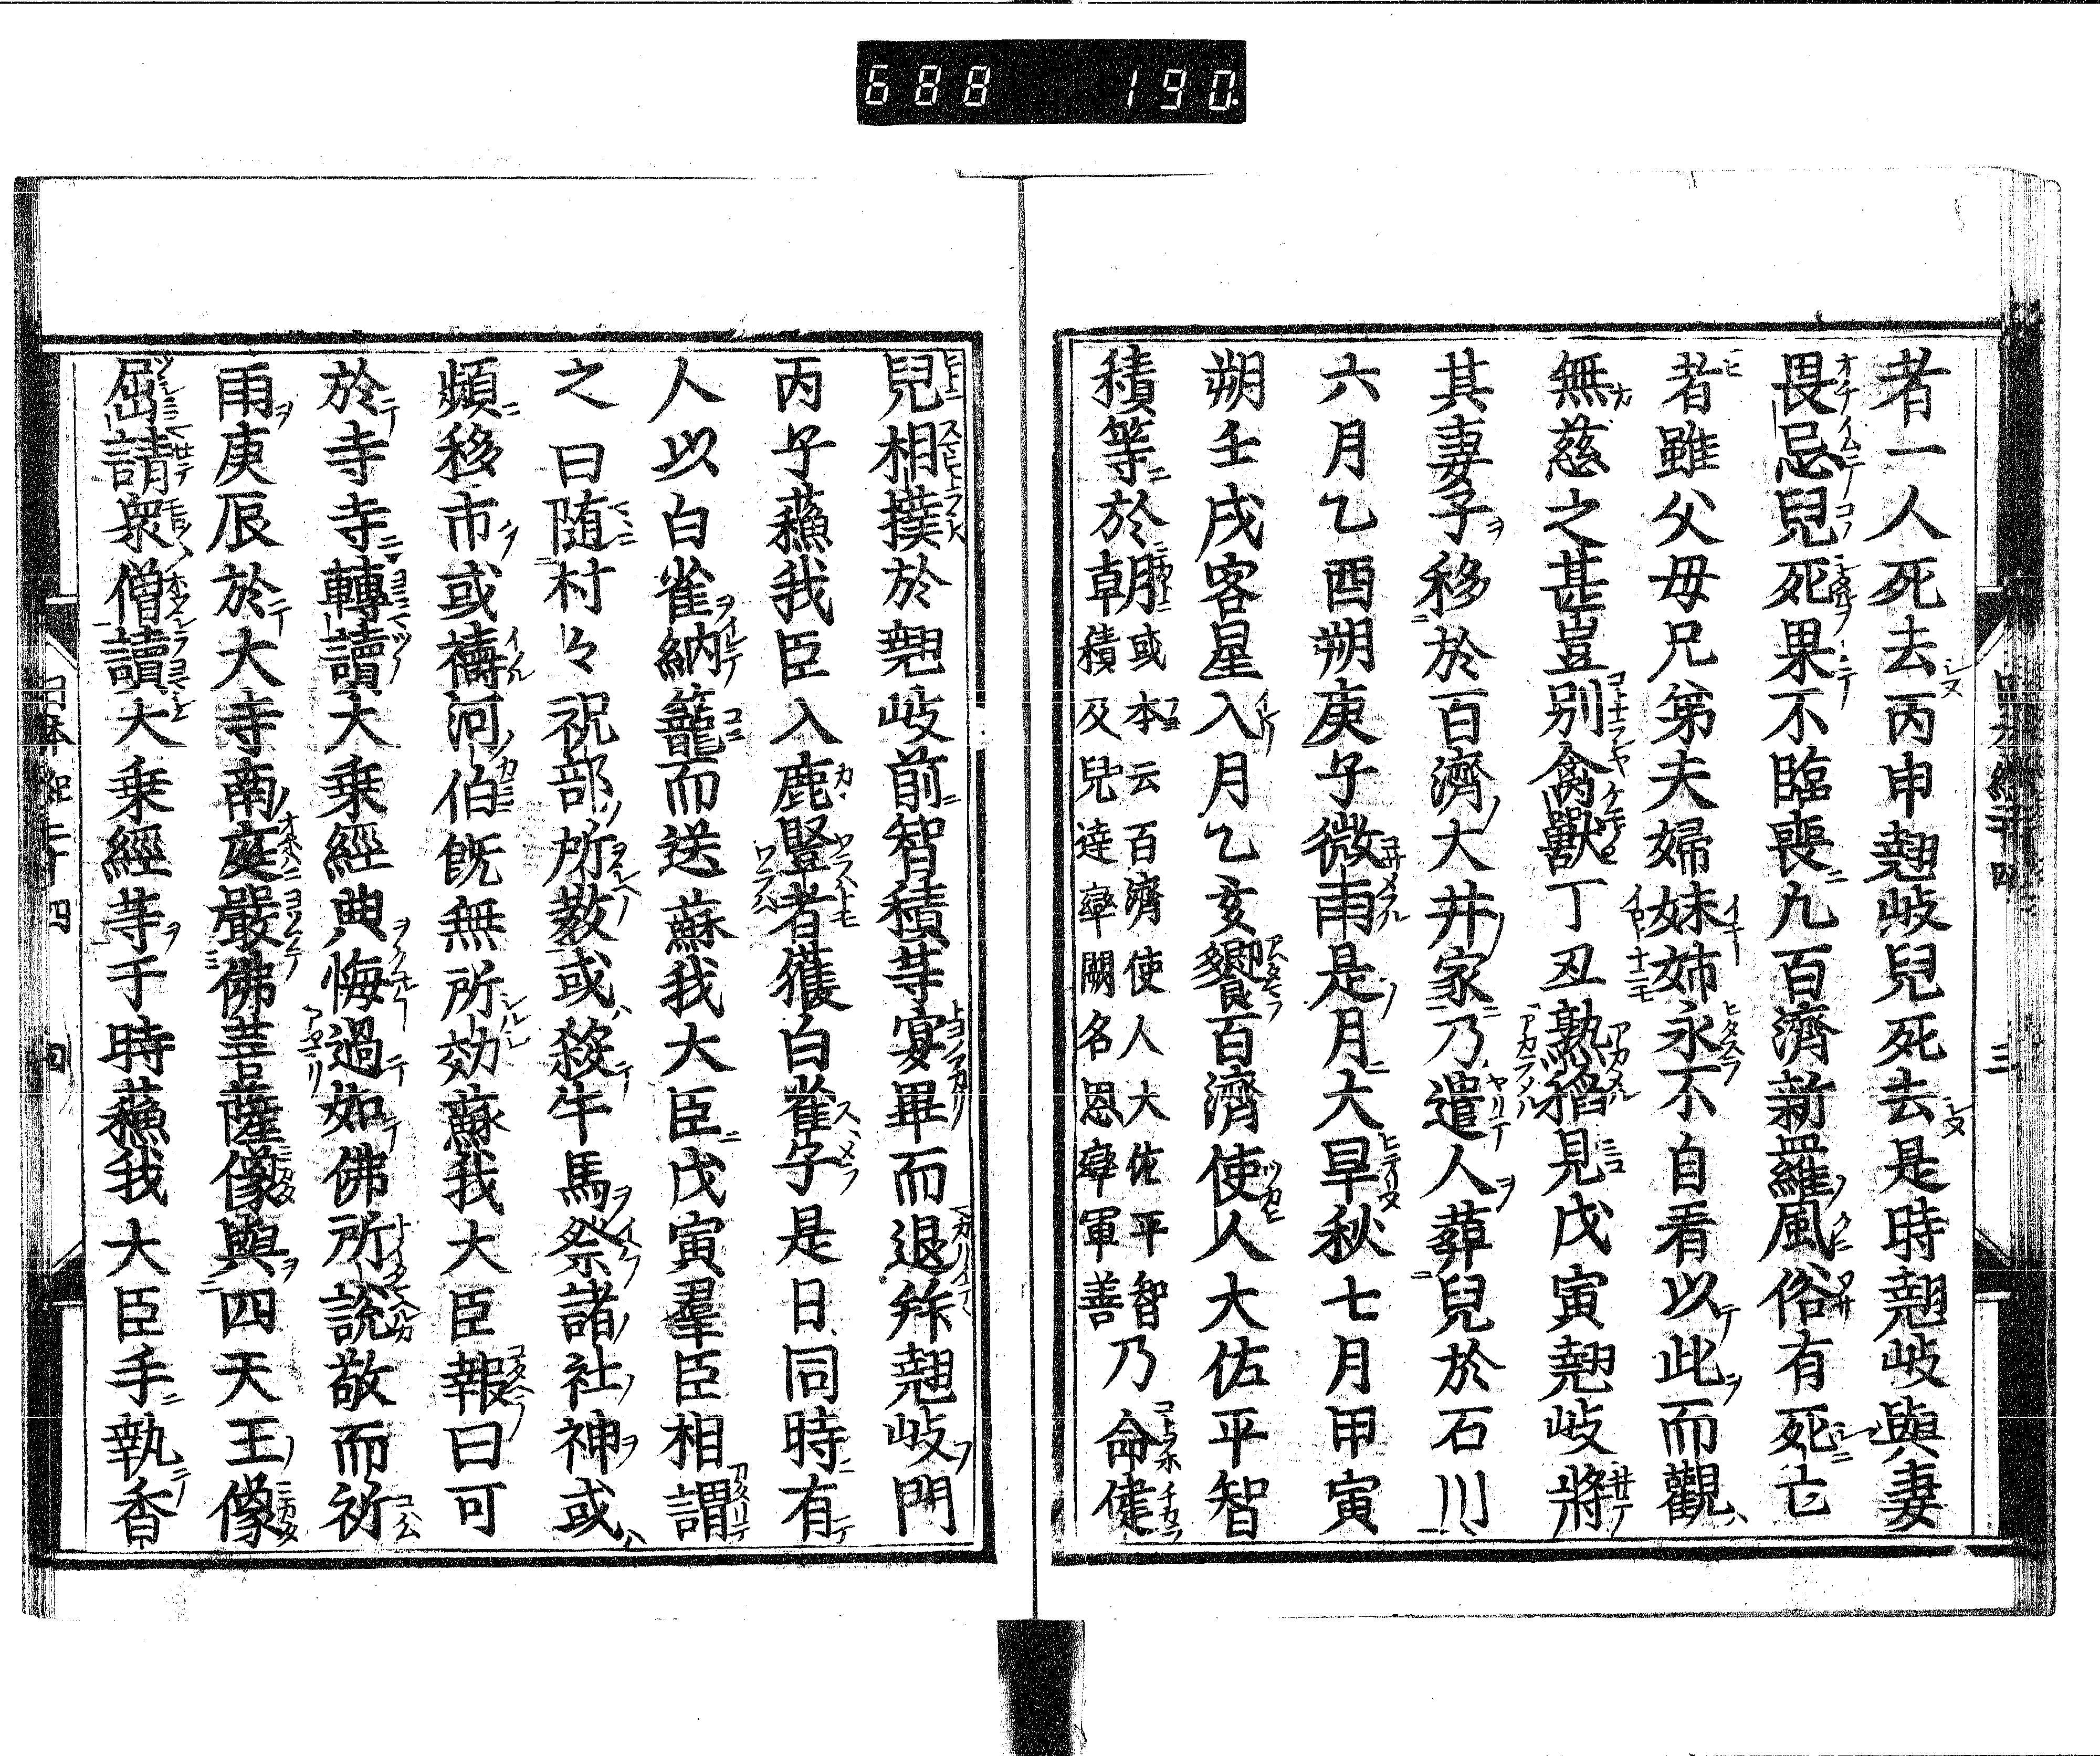 688 190
者一人死去丙申翹岐兒死去是時翹岐與妻
畏忌兒死果不臨喪九百濟新羅風俗有死亡
者雖父母兄弟夫婦妹姉永不自看以此而觀
無慈之甚豈別禽獸丁丑熟稻見戊寅翹岐將
其妻子移於百濟大井家乃遣人葬兒於石川
六月乙酉朔庚子微雨是月大旱秋七月甲寅
朔壬戌客星入月乙亥饗百濟使人大佐平智
積等於朝或本云百濟使人大佐平智積及兒達率闕名恩率軍善乃命健
兒相撲於翹岐前智積等宴畢而退拜翹岐門
丙子蘓我臣入鹿豎者獲白雀子是日同時有
人以白雀納籠而送蘇我大臣戊寅羣臣相謂
之曰随村々祝部所教或殺牛馬祭諸社神或
頻移市或禱河伯既無所効蘇我大臣報曰可
於寺寺轉讀大乗經典悔過如佛所說敬而祈
雨庚辰於大寺南庭嚴佛菩薩像與四天王像
屈請衆僧讀大乗經等于時蘓我大臣手執香
日本紀二十四 四